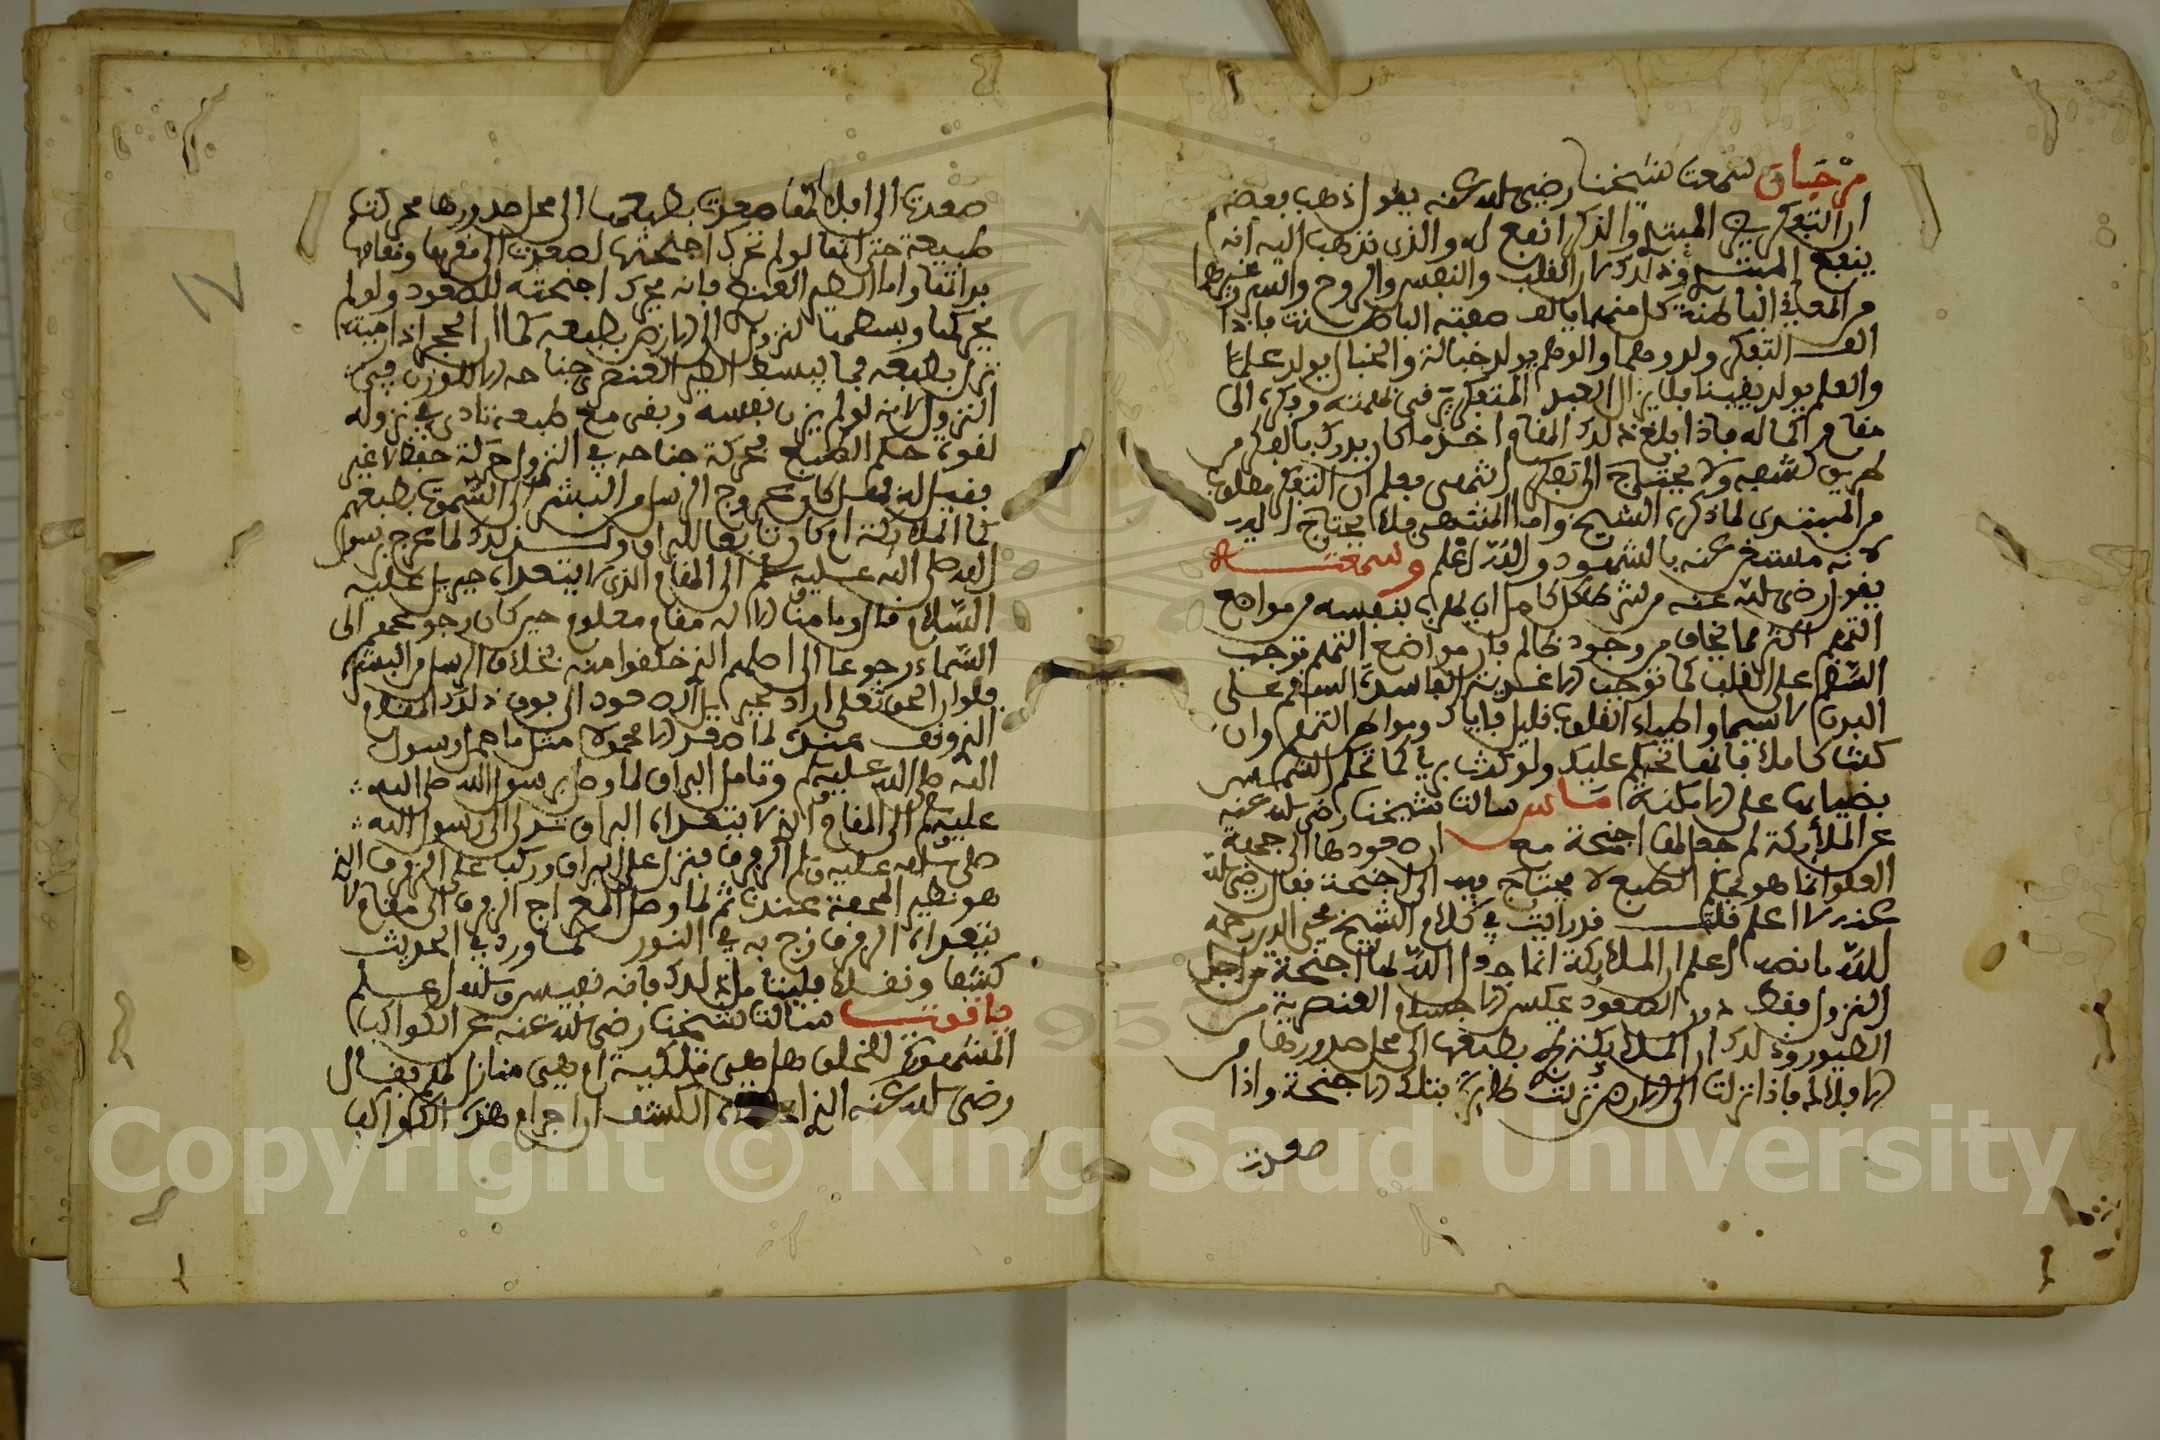 مرجان سمعت شيخنا رضي الله عنه يقول ذهب بعضهم
ان التفكر يضر المبتدي والذكر انفع له والذي نذهب اليه انه
ينفع المبتدي وذلك لان القلب والنفس والروح والسر وغيرها
من المعاني الباطنة كل منها يالف صفته الباطنة فاذا
الف التفكر ولد وهما والوهم يولد خيالا والخيال يولد علما
والعلم يولد يقينا فلا يزال العبد المتفكر يترقى بهمته وفكره الى
مقام الكمال فاذا بلغ ذلك المقام اخذ ما كان يدركه بالفكر من
طريق كشفه ولا يحتاج الى تفكر انتهى فعلم ان التفكر مطلوب
من المبتدي لما ذكره الشيخ واما المنتهي فلا يحتاج اليه
لانه مستغن عنه بالشهود والله اعلم وسمعته
يقول رضي الله عنه من شرط كل كامل ان يخاف بنفسه من مواضع
التهم اكثر مما يخاف من وجود ظالم فان مواضع التهم توجب
السقم على القلب كما توجب الاغذية الفاسدة السقم على
البدن لا سيما واطباء القلوب قليل فاياك ومواطن التهم وان
كنت كاملا فانها تحكم عليك ولو كنت بريا كما تحكم الشمس
بضيائها على الامكنة ماس سالت شيخنا رضي الله عنه
عن الملائكة لم جعل لها اجنحة مع ان صعودها الى جهة
العلو انما هو بحكم الطبع لا يحتاج فيه الى اجنحة فقال رضي الله
عنه لا اعلم فقلت قد رايت في كلام الشيخ محيي الدين رحمه
الله ما نصه اعلم ان الملائكة انما جعل الله لها اجنحة من اجل
النزول فقط دون الصعود عكس الاجسام العنصرية من
الطيور وذلك ان الملائكة بطبعها الى محل صدورها من
الافلاك فاذا نزلت الى الارض نزلت طائرة بتلك الاجنحة واذا
صعدت
صعدت الى افلاكها صعدت بطبعها الى محل صدورها بحركة
طبيعة حتى انها لو لم تحرك اجنحتها لصعدت الى مقرها ومقامها
بذاتها واما الطير العنصري فانه يحرك اجنحته للصعود ولو لم
يحركها ويبسطها لنزل الى الارض بطبعه كما ان الحجر اذا رميته
نزل بطبعه فما يبسط الطير العنصري جناحه الا للوزن في
النزول لانه لو لم يزن نفسه وبقي مع طبعه تاذى في نزوله
لقوة حكم الطبع فحركة جناحه في النزول حركة حفظ لا غير
فقيل له فهل كان عروج الرسل من البشر الى السموات بطبعهم
كما الملائكة ام كان تابعا للبراق وكذلك لما عرج برسول
الله صلى الله عليه وسلم الى المقام الذي لا يتعداه جبريل عليه
السلام قال وما منا الا له مقام معلوم حين كان رجوعهم الى
السماء رجوعا الى اصلهم الذي خلقوا منه بخلاف الرسل من البشر
فلو ان الحق تعالى اراد بجبريل الصعود الى فوق ذلك المقام
الذي وقف عنده لما صعد الا محمولا مثل ما حمل رسول
الله صلى الله عليه وسلم وتامل البراق لما وصل برسول الله صلى الله
عليه وسلم الى المقام الذي لا يتعداه البراق تدلى الى رسول الله
صلى الله عليه وسلم الرفرف فنزل عن البراق وركب على الرفرف الذي
هو نظير المحفة عندنا ثم لما وصل المعراج الرفرف الى مقام لا
يتعداه الرفرف زج به في النور كما ورد في الحديث
كشفا ونقلا فليتامل ذلك فانه نفيس والله اعلم
ياقوت سالت شيخنا رضي الله عنه عن الكواكب
المشهورة للخلق هل هي فلكية ام هي منازل لها فقال
رضي الله عنه الذي اعطاه الكشف ان اجرام هذه الكواكب